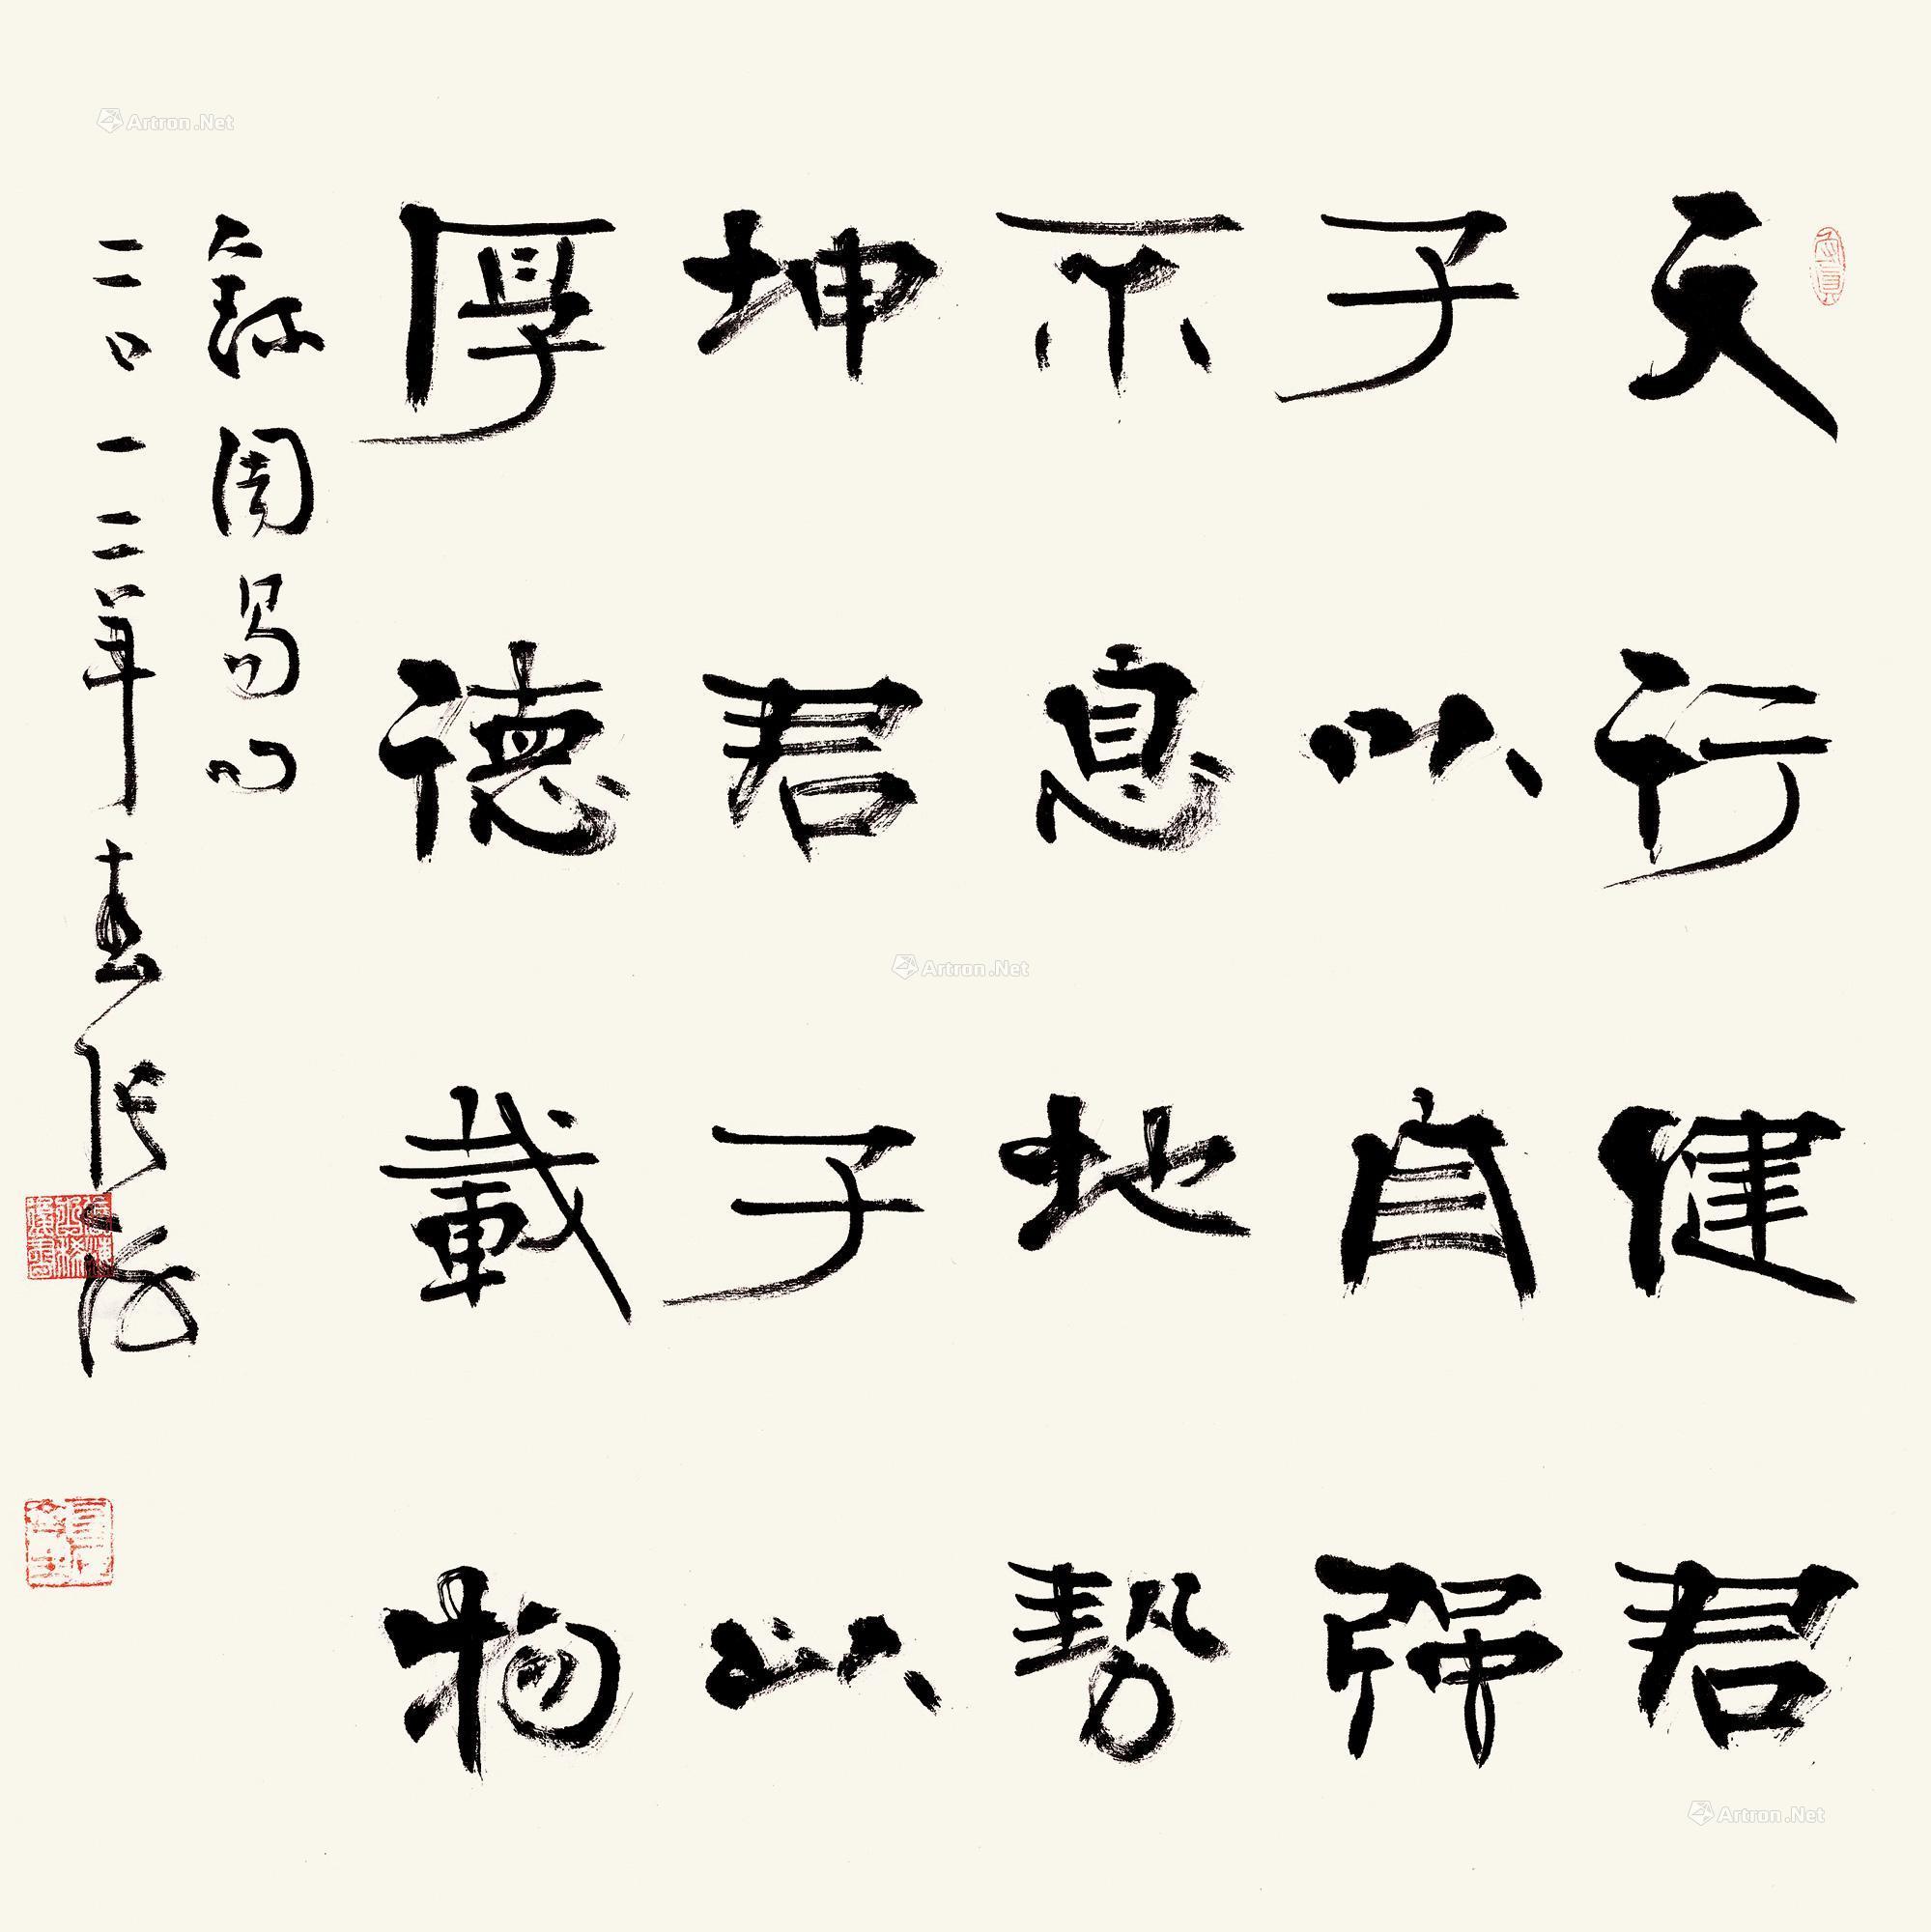 天行健君
子以自强
不息地势
坤君子以
厚德载物
录周易句
二〇一二年春 张海
Artron.Net
Artron.Net
Artron.Net